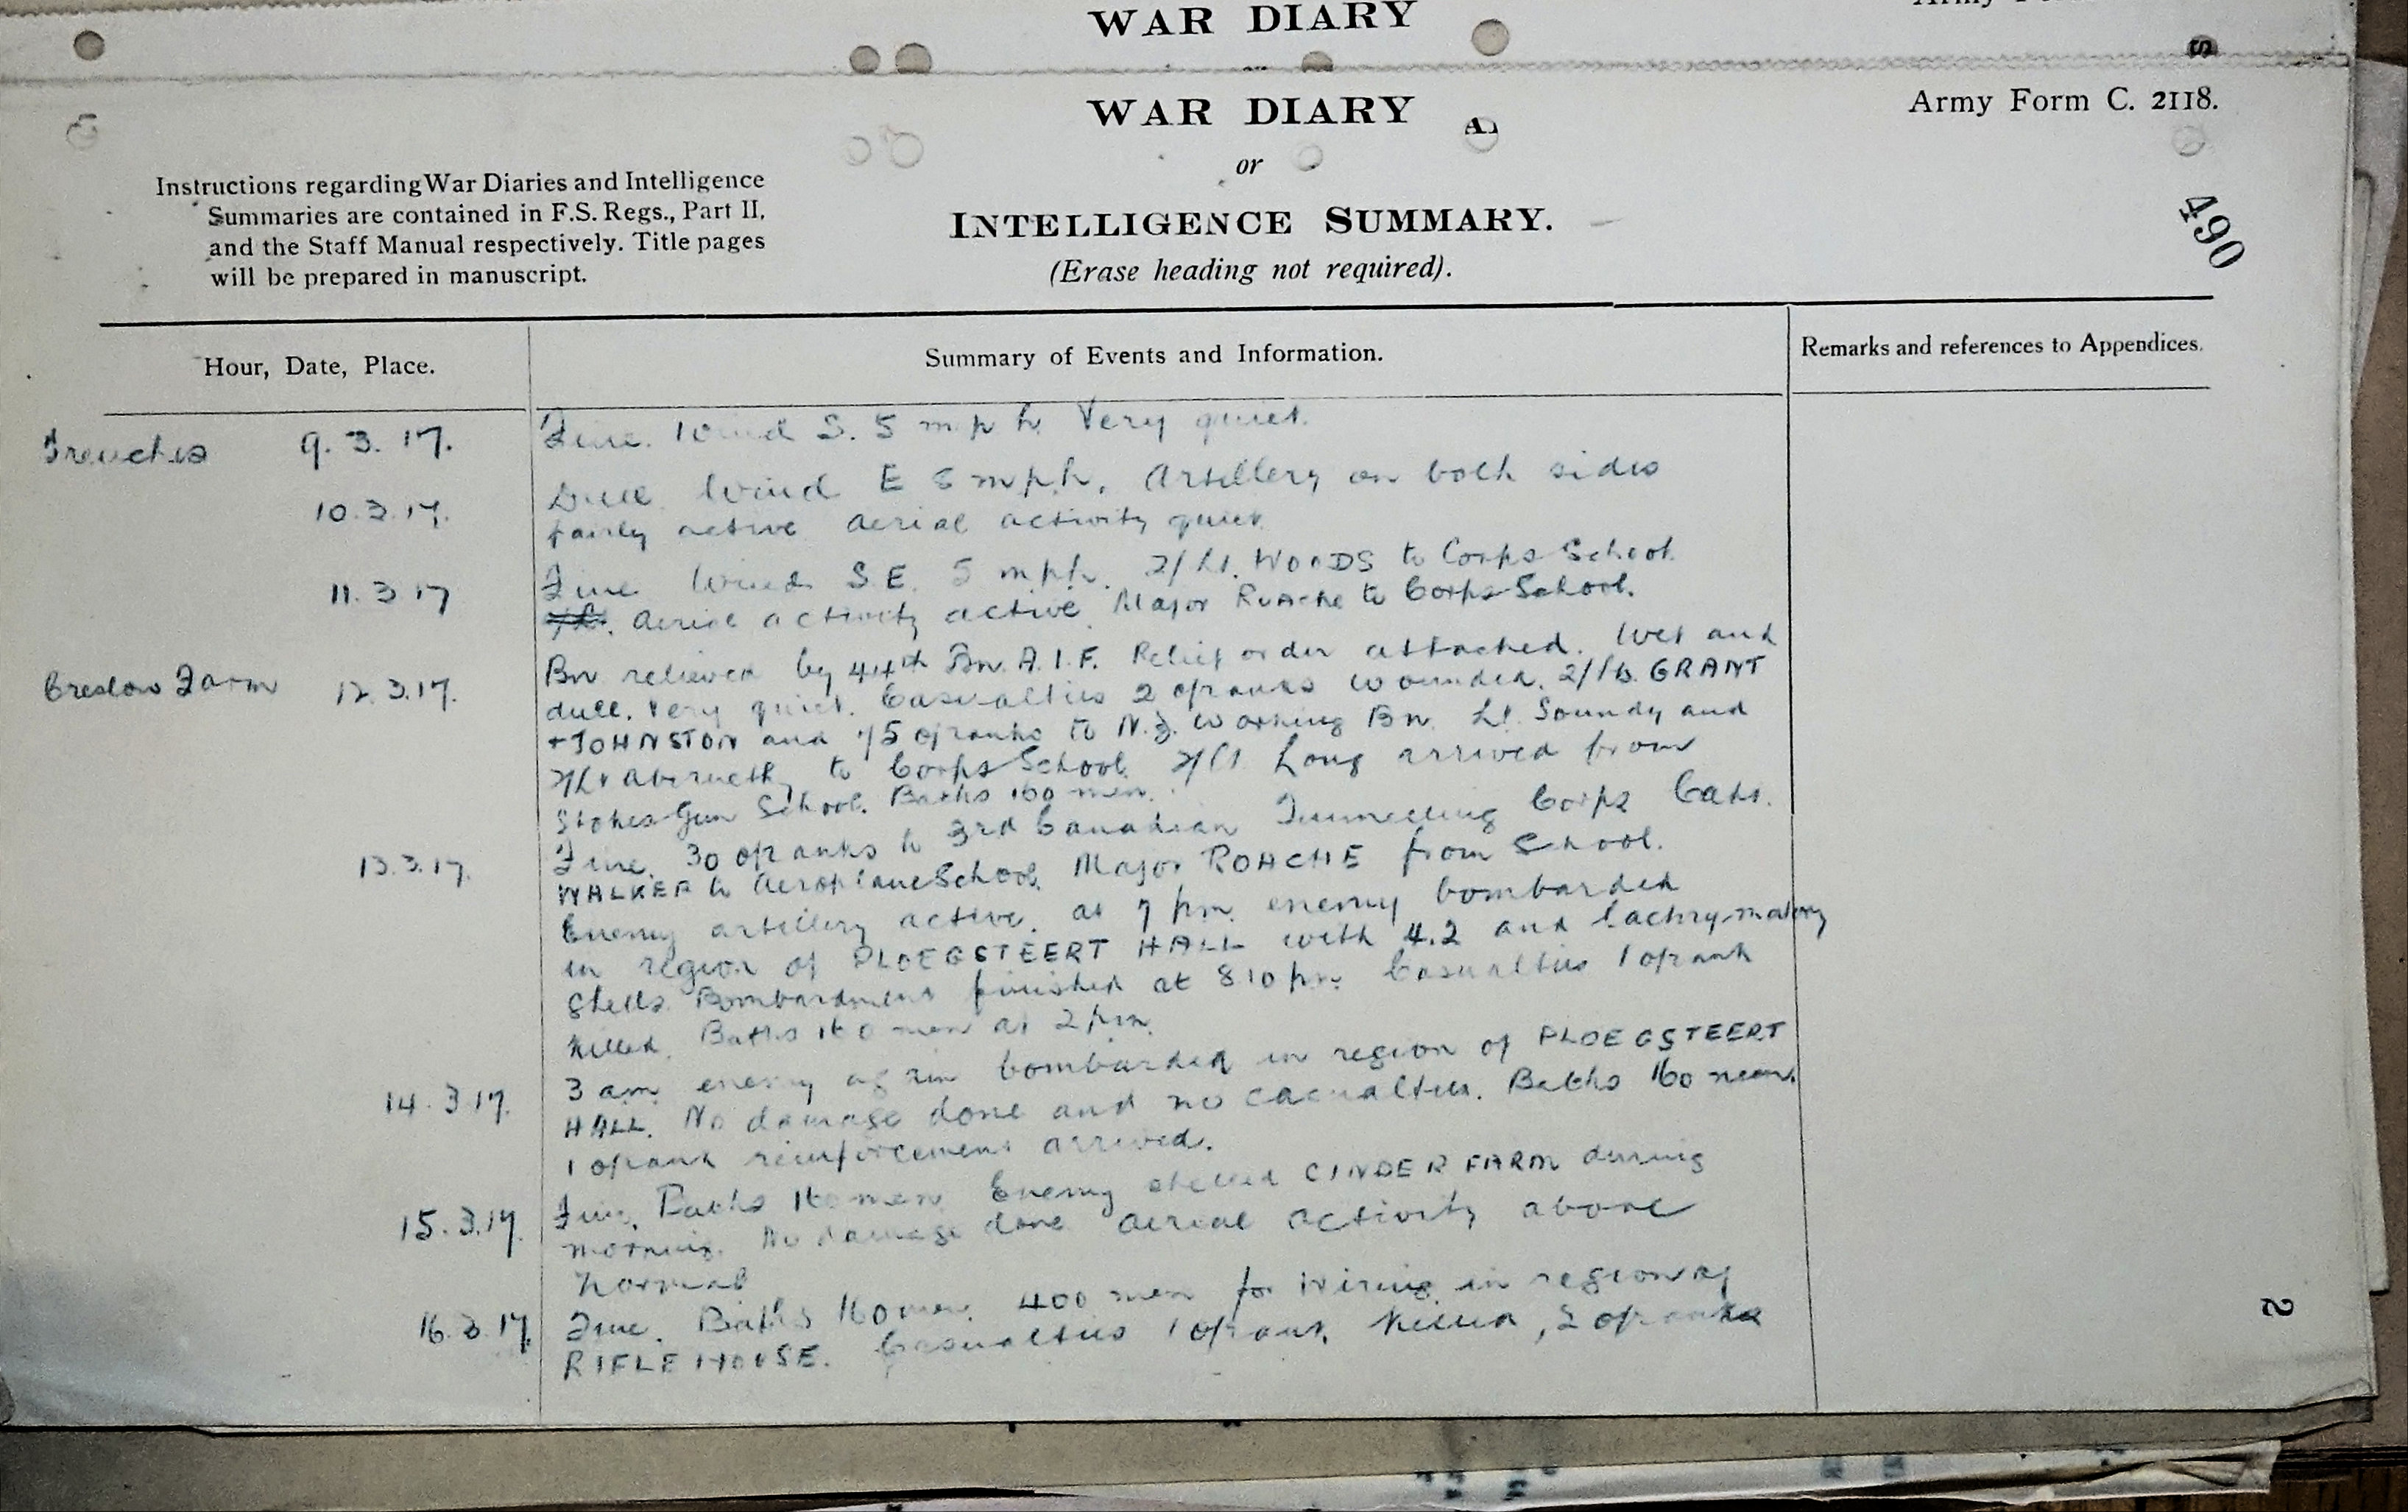 WAR DIARY
WAR DIARY
Army Form C. 2118.
or
Instructions regarding War Diaries and Intelligence
Summaries are contained in F.S. Regs., Part II,
and the Staff Manual respectively. Title pages
will be prepared in manuscript.
INTELLIGENCE SUMMARY.
(Erase heading not required).
490
Hour, Date, Place.
Summary of Events and Information.
Remarks and references to Appendices.
Trenches 9.3.17. Fine. Wind S. 5 mph. Very quiet.
10.3.17. Dull Wind E 8 mph. Artillery on both sides
fairly active Aerial activity quiet
11.3.17 Fine Wind S.E. 5 mph. 2/Lt. WOODS to Corps School.
Aerial activity active. Major Roache to Corps School.
Breslow Farm 12.3.17. Bn relieved by 44th Bn. A.I.F. Relief order attached. Wet and
dull. Very quiet. Casualties 2 opranks wounded. 2/Lts. GRANT
+ JOHNSTON and 75 opranks to N.Z. Working Bn. Lt. Soundy and
2/Lt Abernethy to Corps School. 2/Lt Long arrived from
Stokes Gun School. Baths 160 men.
13.3.17. Fine. 30 opranks to 3rd Canadian Tunnelling Corps Capt.
WALKER to Aeroplane School. Major ROACHE from School.
Enemy artillery active. at 7 pm. enemy bombarded
in region of PLOEGSTEERT HALL with 4.2 and lachrymatory
Shells. Bombardment finished at 8 10 pm. Casualties 1 oprank
killed. Baths 160 men at 2 pm.
14.3.17. 3 am enemy again bombarded in region of PLOEGSTEERT
HALL. No damage done and no casualties. Baths 160 men.
1 oprank reinforcement arrived.
15.3.17. Fine. Baths 160 men. Enemy shelled CINDER FARM during
morning. No damage done Aerial activity above
normal
16.3.17. Fine. Baths 160 men. 400 men for Wiring in region of
RIFLE HOUSE. Casualties 1 oprank killed, 2 opranks
2